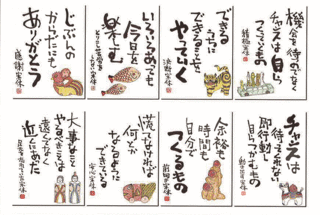 機会を待つのでなく
チャンスは自ら
つくっていくもの
できる
うちに
できることを
やっていく
いろいろあっても
今日を
楽しむ
じぶんの
からだにも
ありがとう
感謝
チャンスは
待ってくれない
即行動し
自らつかむもの
余裕も
時間も
自分で
つくるもの
慌てなければ
何とか
なるように
できている
大事なこと
やるべきことは
遠くでなく
近くにあった